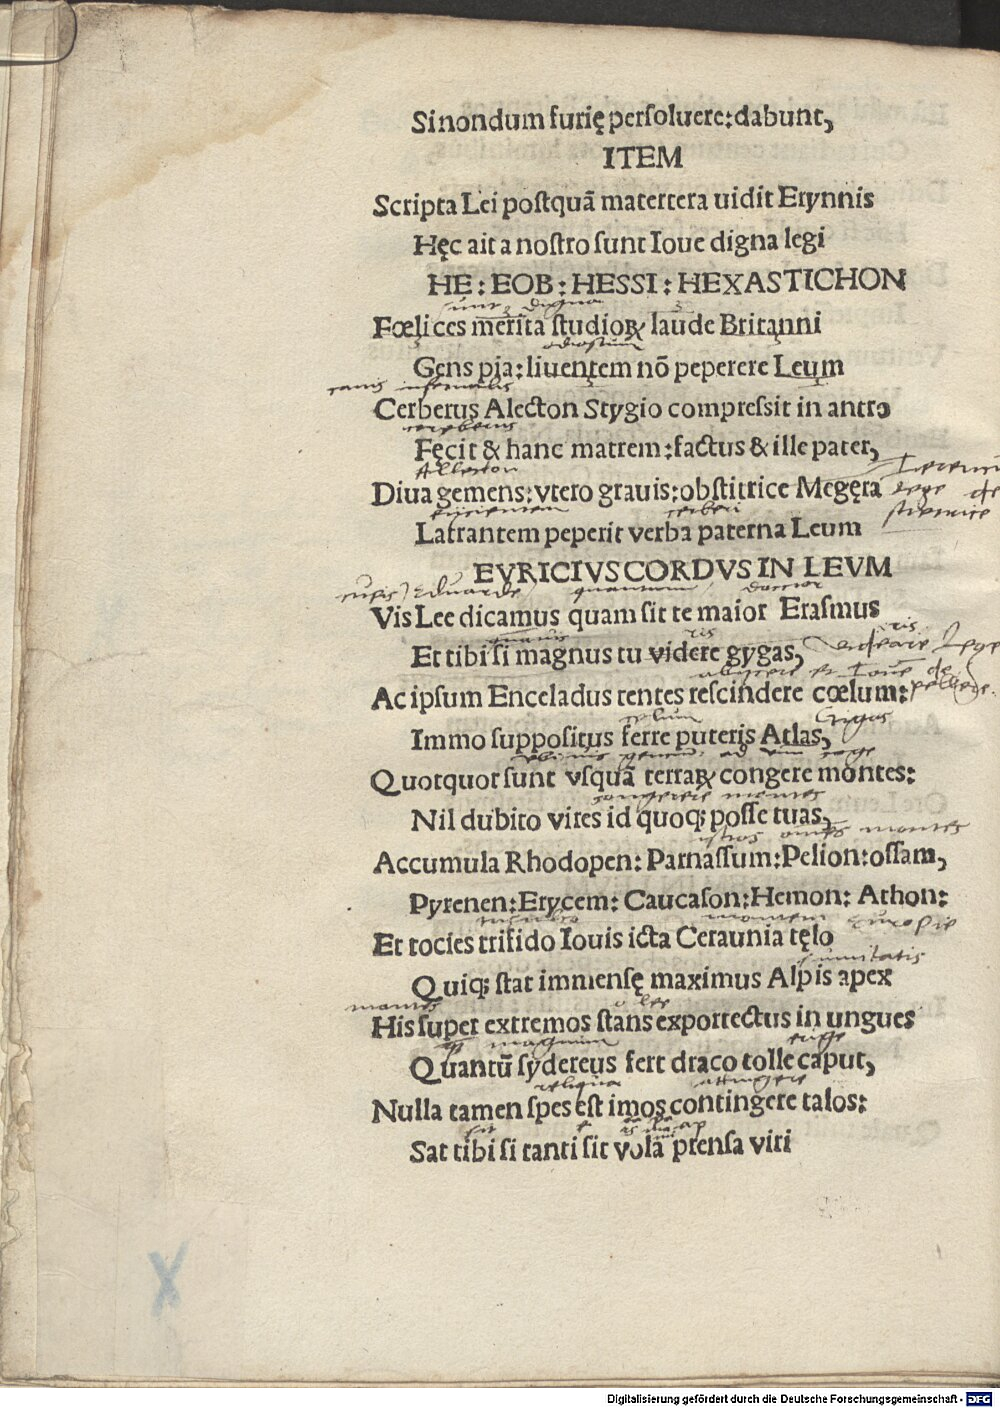 Sinondum furię persoluere: dabunt,
ITEM
Scripta Lei postquā matertera uidit Erynnis
Hęc ait a nostro sunt Ioue digna legi
HE: EOB: HESSI: HEXASTICHON
sunt digna
Fœlices merita studioꝝ laude Britanni
Gens pia: liuentem nō peperere Leum
canis infernalis
Cerberus Alecton Stygio compressit in antro
cerberus
Fęcit & hanc matrem: factus & ille pater,
Allecton
Diua gemens: vtero grauis: obstitrice Megęra
cerberi
Latrantem peperit verba paterna Leum
EVRICIVS CORDVS IN LEVM
Eduarde quantum doctior
Vis Lee dicamus quam sit te maior Erasmus
quamuis ris ris
Et tibi si magnus tu videre gygas,
et Ioue de
Ac ipsum Enceladus tentes rescindere cœlum:
pellere.
celum Gygas
Immo suppositus ferre puteris Atlas,
Quotquot sunt vsquā terraꝝ congere montes:
congerere montes
Nil dubito vires id quoq; posse tuas,
istos omnes montes
Accumula Rhodopen: Parnassum: Pelion: ossam,
Pyrenen: Erycem: Caucason: Hemon: Athon:
montem
Et tocies trifido Iouis icta Ceraunia tęlo
summitatis
Quiq; stat immensę maximus Alpis apex
montes o lee
His super extremos stans exporrectus in ungues
magnum erige
Quantū sydereus fert draco tolle caput,
reliqua attingere
Nulla tamen spes est imos contingere talos:
Sat tibi si tanti sit vola prensa viri
X
Digitalisierung gefördert durch die Deutsche Forschungsgemeinschaft - DFG